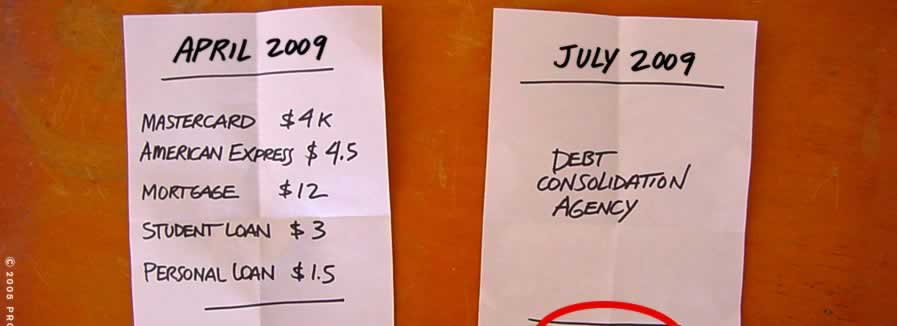 APRIL 2009
MASTERCARD $4K
AMERICAN EXPRESS $4.5
MORTGAGE $12
STUDENT LOAN $3
PERSONAL LOAN $1.5
JULY 2009
DEBT
CONSOLIDATION
AGENCY
© 2005 PRO